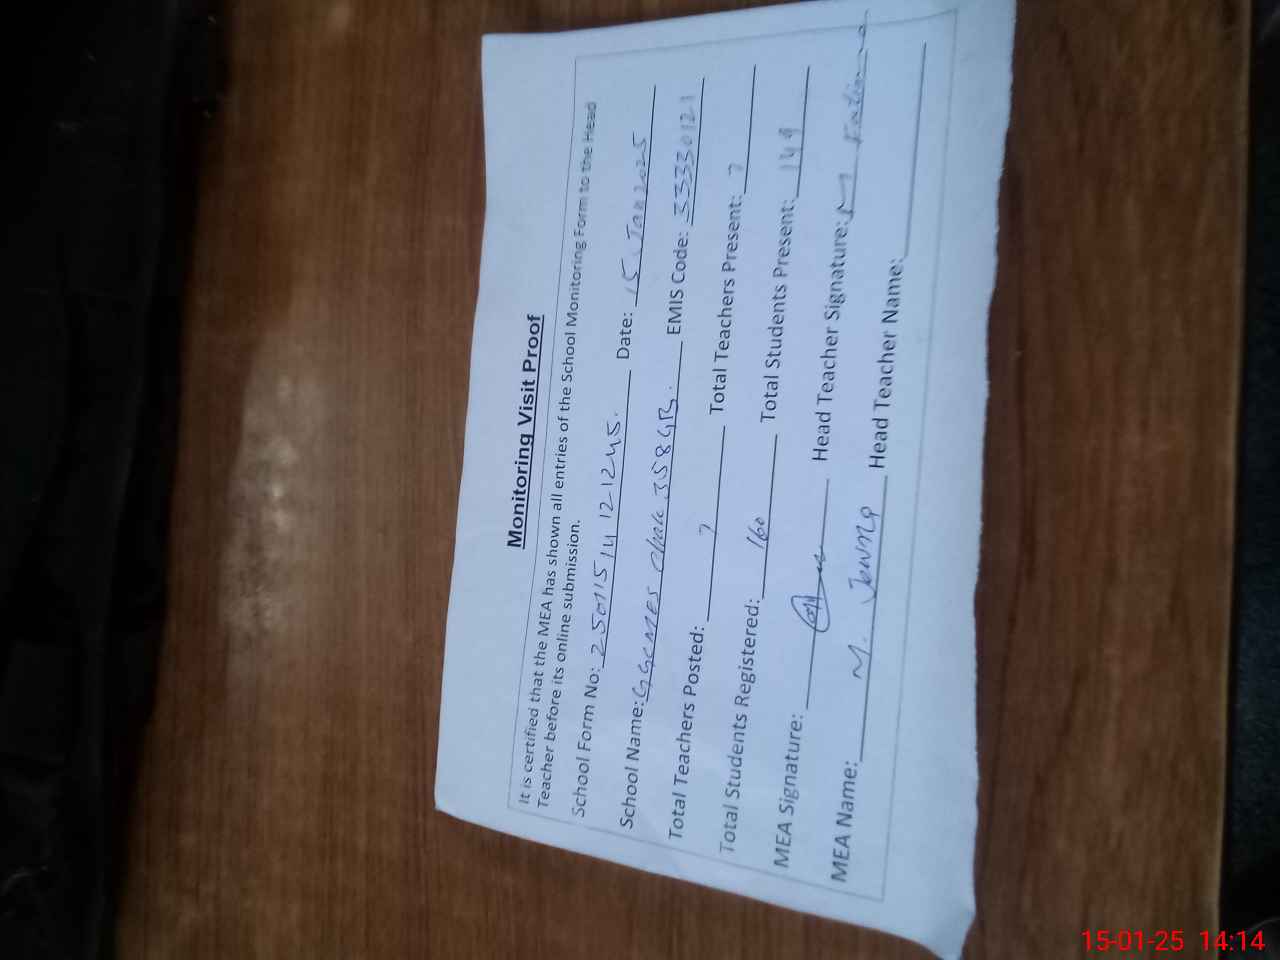 Monitoring Visit Proof
It is certified that the MEA has shown all entries of the School Monitoring Form to the Head
Teacher before its online submission.
School Form No: 25011514121245. Date: 15, Jan 2025
School Name: GGCMES chak 358GB. EMIS Code: 33330121
Total Teachers Posted: 7 Total Teachers Present: 7
Total Students Registered: 160 Total Students Present: 149
MEA Signature: Head Teacher Signature: M
MEA Name: M. Head Teacher Name:
15-01-25 14:14